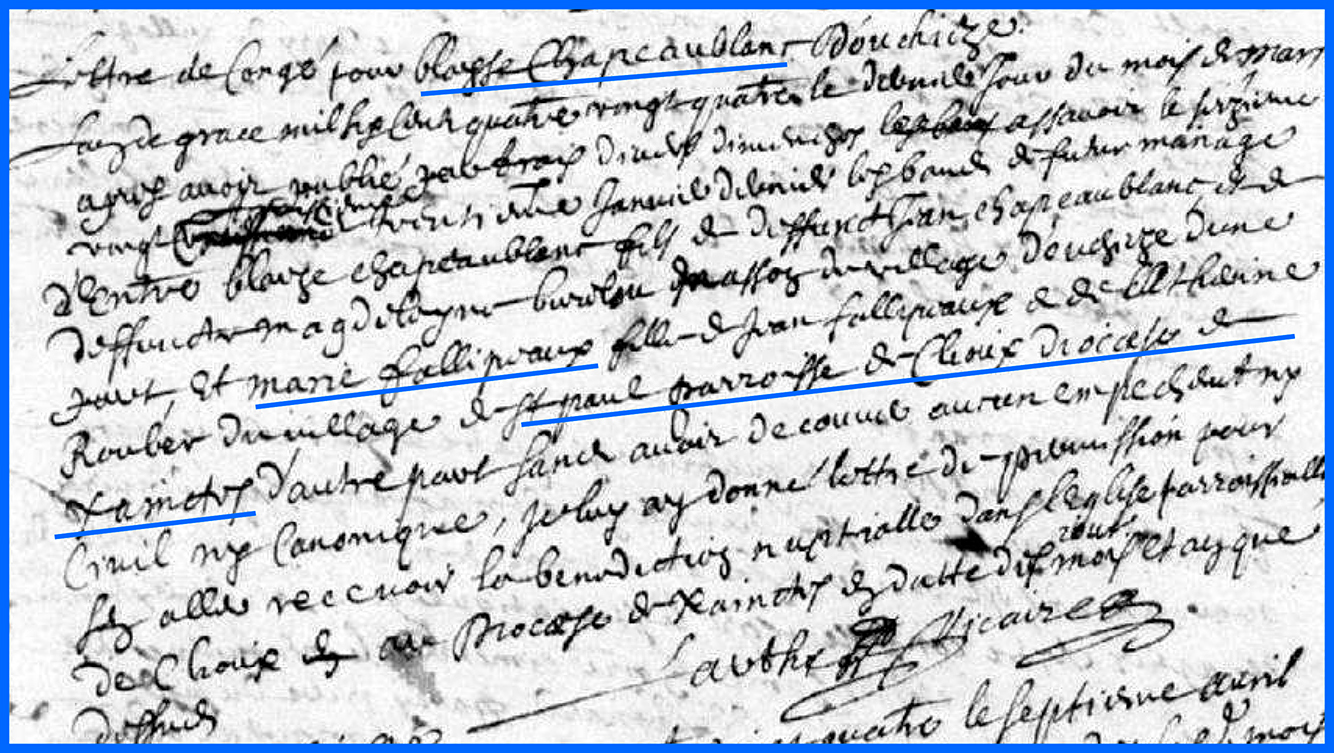 Lettre de Congé pour blaise Chapeaublanc D'ouchize.
L'an de grace mil six Cens quatre vingt quatre le dernier Jour du mois de Mars
apres avoir publié par trois divers dimenches assavoir le sixziesme
vingt trentiesme Janvier dernier les bans de futur mariage
D'Entre blaize chapeaublanc fils de deffunct Jean chapeaublanc et de
deffuncte magdelayne masson du village d'ouchize d'une
part, Et marie fallipeaux fille de Jean fallipeaux et de Catherine
Rouber du village de st paul parroisse de Clioux Diocese de
Xainctes d'autre part sans avoir decouvert aucun empeschement ny
Civil ny Canonique, je luy ay donné lettre de permission pour
aller recevoir la benediction nuptialle dans l'eglise parroissialle
de Clioux au Diocese de Xainctes en datte dix mois et an que
dessus
Vicaire
quatre le septiesme avril
mois